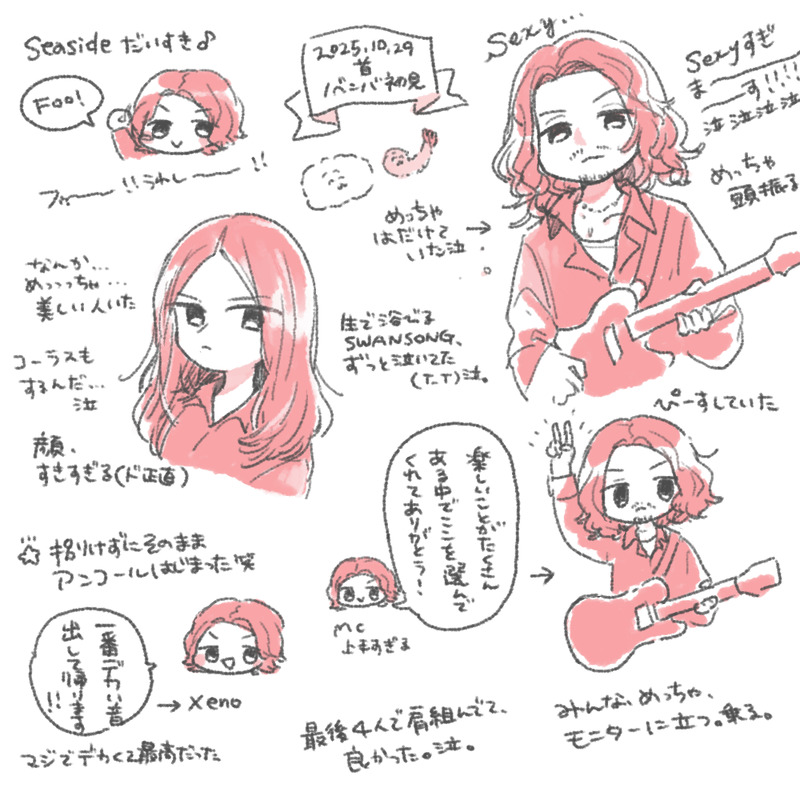 Seasideだいすき♪
Foo!
フゥ〜〜!!うれし〜〜!!
2025.10.29
首
ノベンバ初見
Sexy...
Sexyすぎ
ま〜〜
〜〜す!!!!
泣泣泣泣
めっちゃ
頭振る
めっちゃ
はだけて
いた泣
→
なんか...
めっっっちゃ...
美しい人いた
コーラスも
するんだ...
泣
顔、
すきすぎる(ド正直)
生で浴びる
SWANSONG、
ずっと泣いてた
(T-T)泣。
ぴーすしていた
楽しいことがたくさん
ある中でここを選んで
くれてありがとう!
MC
上手すぎる
→
☆捌けずにそのまま
アンコールはじまった笑
一番デカい音
出して帰ります
!!
→xeno
マジでデカくて最高だった
最後4人で肩組んでて、
良かった。泣。
みんなめっちゃ、
モニターに立つ。乗る。